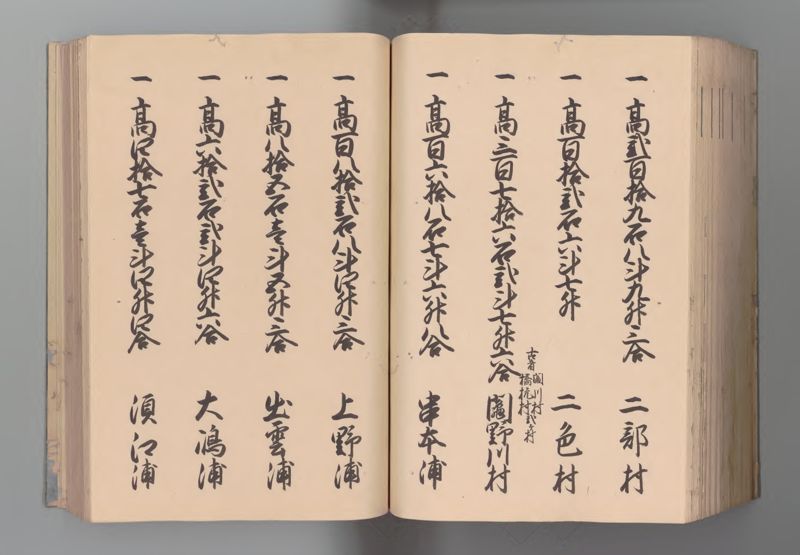 一 高弐百拾九石八斗九升三合 二部村
一 高百拾弐石六斗七升 二色村
一 高三百七拾六石弐斗七升六合 鬮野川村
古者 鬮川村
橋杭村弐ヶ村
一 高百六拾八石七斗六升八合 串本浦
一 高百八拾弐石八斗四升三合 上野浦
一 高八拾五石壱斗五升三合 出雲浦
一 高六拾弐石弐斗四升六合 大嶋浦
一 高四拾七石壱斗四升四合 須江浦